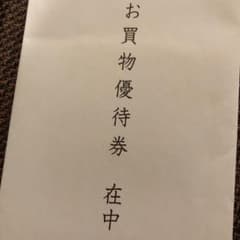 お買物優待券 在中